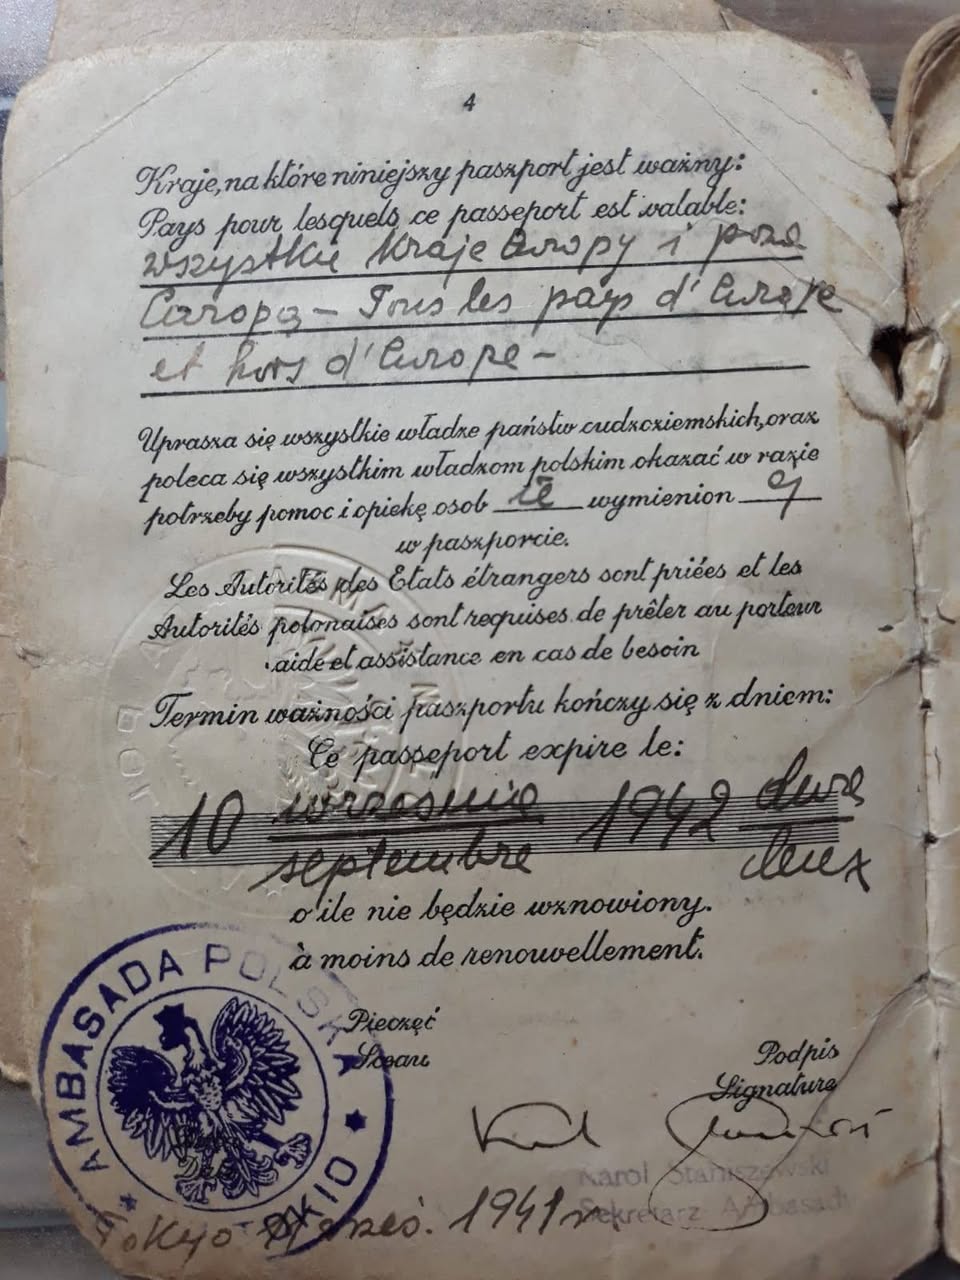 4
Kraje, na które niniejszy paszport jest ważny:
Pays pour lesquels ce passeport est valable:
wszystkie kraje Europy i poza
Europą – Tous les pays d'Europe
et hors d'Europe –
Uprasza się wszystkie władze państw cudzoziemskich, oraz
poleca się wszystkim władzom polskim okazać w razie
potrzeby pomoc i opiekę osob ie wymienion ej
w paszporcie.
Les Autorités des Etats étrangers sont priées et les
Autorités polonaises sont requises de prêter au porteur
aide et assistance en cas de besoin
Termin ważności paszportu kończy się z dniem:
Ce passeport expire le:
10 września 1942 dwa
septembre deux
o ile nie będzie wznowiony.
à moins de renouvellement.
AMBASADA POLSKA
TOKIO
Pieczęć
Sceau
Podpis
Signature
Karol Staniszewski
Sekretarz Ambasady
Tokyo 1941 r.